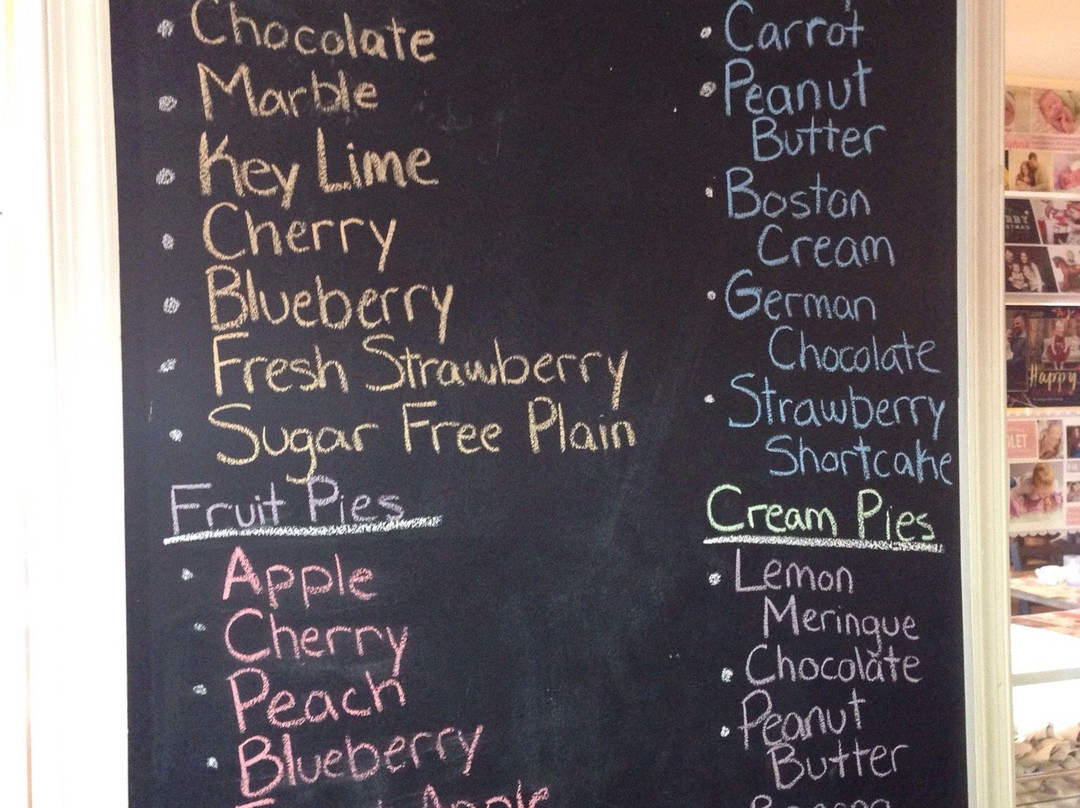 Chocolate
Marble
Key Lime
Cherry
Blueberry
Fresh Strawberry
Sugar Free Plain
Fruit Pies
Apple
Cherry
Peach
Blueberry
Apple
Carrot
Peanut
Butter
Boston
Cream
German
Chocolate
Strawberry
Shortcake
Cream Pies
Lemon
Meringue
Chocolate
Peanut
Butter
Happy